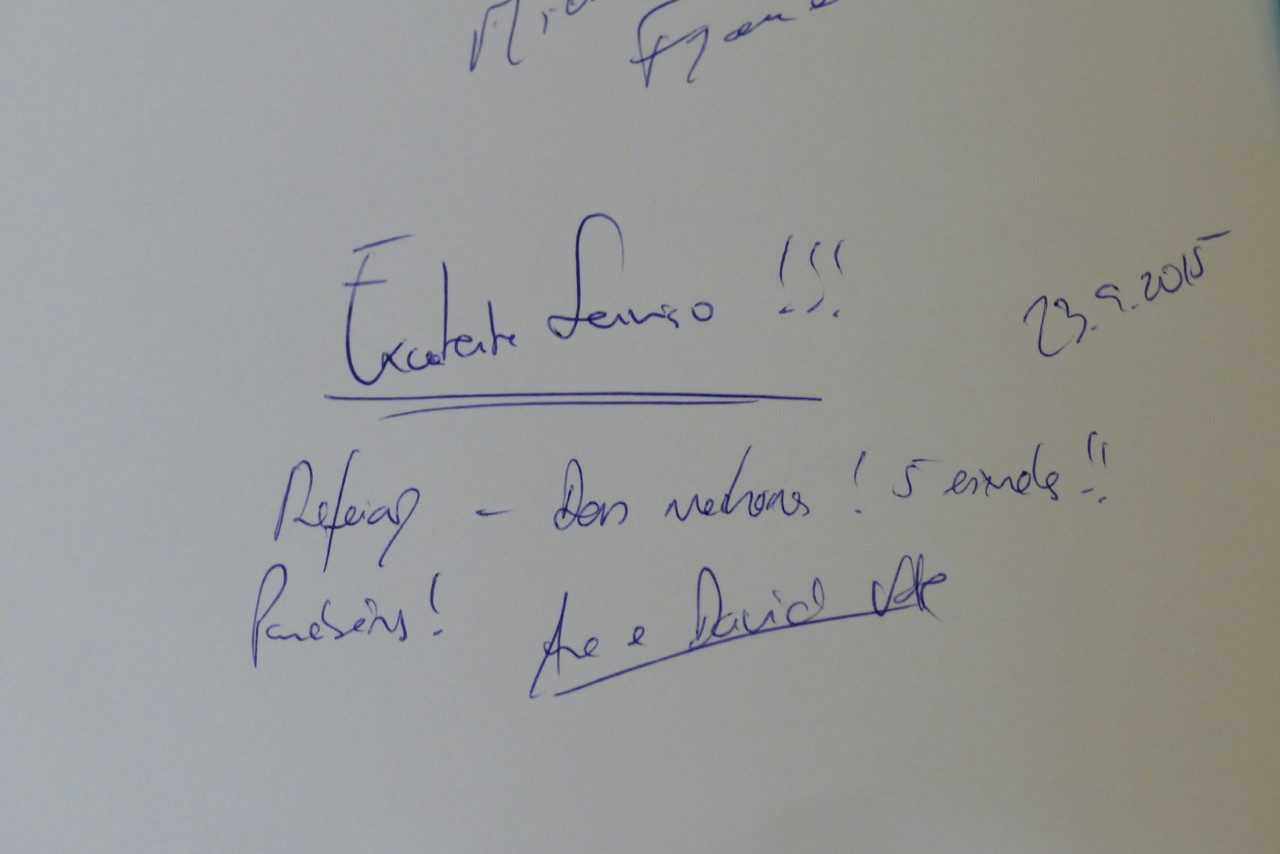 Excelente Serviço !!!
23.9.2015
Refeição - Das melhores ! 5 estrelas !!
Parabéns! Ana e David Vale